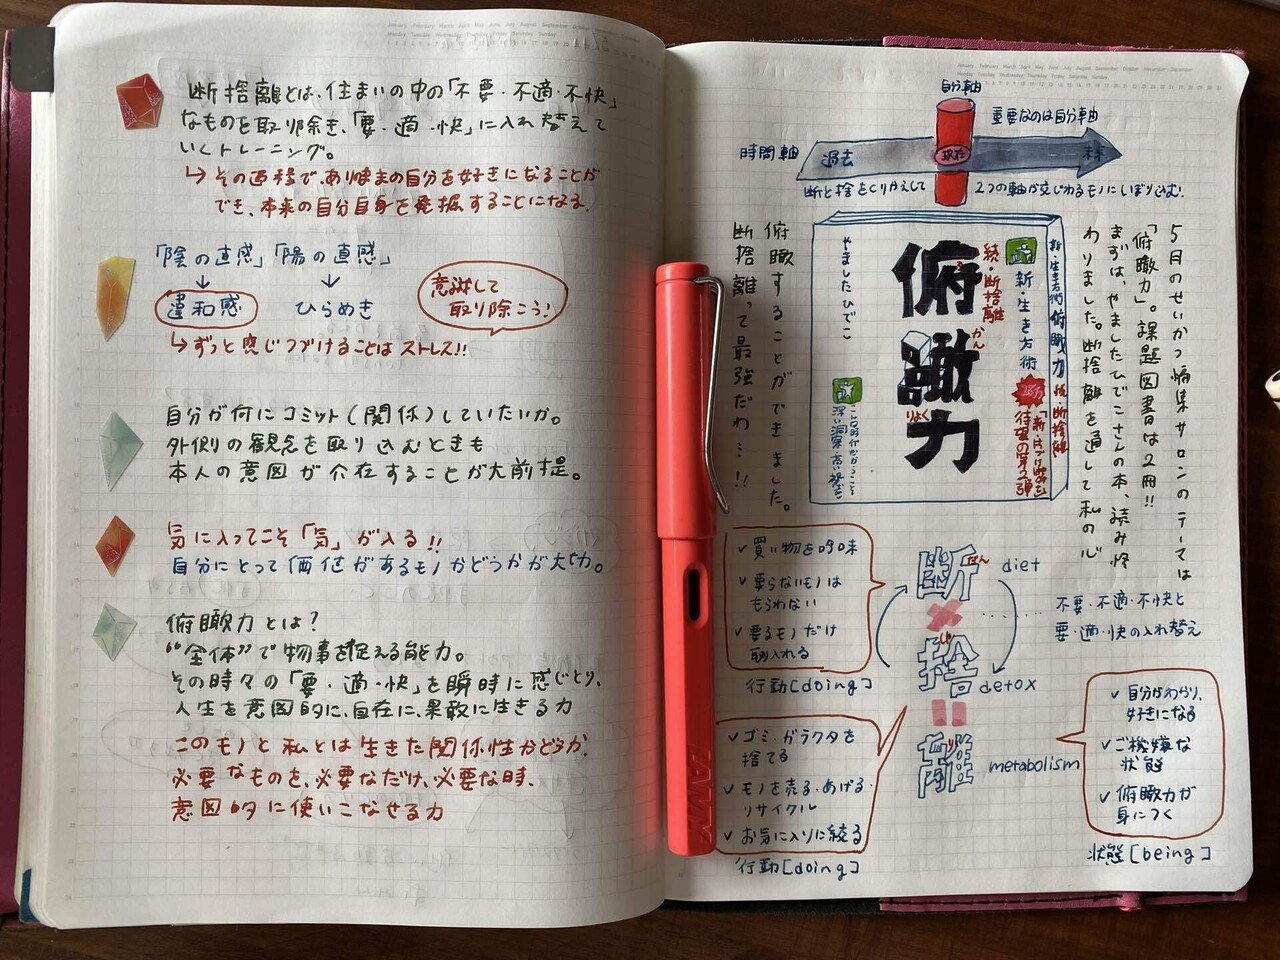 断捨離とは、住まいの中の「不要・不適・不快」
なものを取り除き、「要・適・快」に入れ替えて
いくトレーニング。
↳その過程で、あり愭まの自分を好きになることが
でき、本来の自分自身を発掘することになる。
「陰の直感」「陽の直感」
↓ ↓
違和感 ひらめき
意識して
取り除こう!
↳ずっと感じつづけることはストレス!!
自分が何にコミット(関係)していたいか。
外側の観念を取り込むときも
本人の意図が介在することが大前提。
気に入ってこそ「気」が入る!!
自分にとって価値があるモノかどうかが大切。
俯瞰力とは?
“全体”で物事を捉える能力。
その時々の「要・適・快」を瞬時に感じとり、
人生を意図的に、自在に、果敢に生きる力
このモノと私とは生きた関係性かどうか。
必要なものを、必要なだけ、必要な時、
意図的に使いこなせる力
January February March April May June July August September October November December
Monday Tuesday Wednesday Thursday Friday Saturday Sunday
自分軸
重要なのは自分軸
時間軸
過去
現在
未来
断と捨をくりかえして
2つの軸が交じわるモノにしぼり込む!
5月のせいかつ編集サロンのテーマは
「俯瞰力」。課題図書は2冊!!
まずは、やましたひでこさんの本、読み終
わりました。断捨離を通して私の心
俯瞰することができました。
断捨離って最強だわ…!!
新・生き方術 俯瞰力 続・断捨離
新・生き方術
続・断捨離
俯瞰力
かん
りょく
やましたひでこ
待望の第2弾
買い物を吟味
要らないモノは
もらわない
要るモノだけ
取入れる
行動[doing]
断 だん diet
捨 しゃ detox
離 り metabolism
不要・不適・不快と
要・適・快の入れ替え
ゴミ・ガラクタを
捨てる
モノを売る・あげる・
リサイクル
お気に入りに絞る
行動[doing]
自分がわかり、
好きになる
ご機嫌な
状態
俯瞰力が
身につく
状態[being]
LAMY